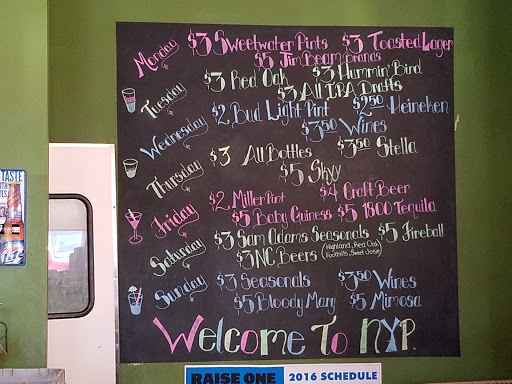 Monday $3 Sweetwater Pints $3 Toasted Lager
$5 Jim Beam Brands
Tuesday $3 Red Oak $3 Hummin' Bird
$3 All IPA Drafts
Wednesday $2 Bud Light Pint $2.50 Heineken
$3.50 Wines
Thursday $3 All Bottles $3.50 Stella
$5 Skyy
Friday $2 Miller Pint $4 Craft Beer
$5 Baby Guiness $5 1800 Tequila
Saturday $3 Sam Adams Seasonals $5 Fireball
$3 NC Beers (Highland, Red Oak,
Foothills, Sweet Josie)
Sunday $3 Seasonals $3.50 Wines
$5 Bloody Mary $5 Mimosa
Welcome To NYP
TASTE
RAISE ONE 2016 SCHEDULE